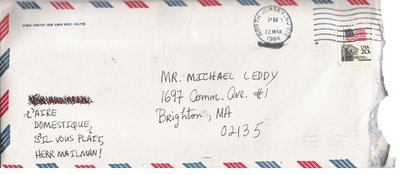 NORTH JERSEY, NJ
PM
22 MAR
1984
USA
20c
MR. MICHAEL LEDDY
1697 Comm. Ave. #1
Brighton, MA
02135
L'AIRE
DOMESTIQUE,
S'IL VOUS PLAÎT,
HERR MAILMAN!